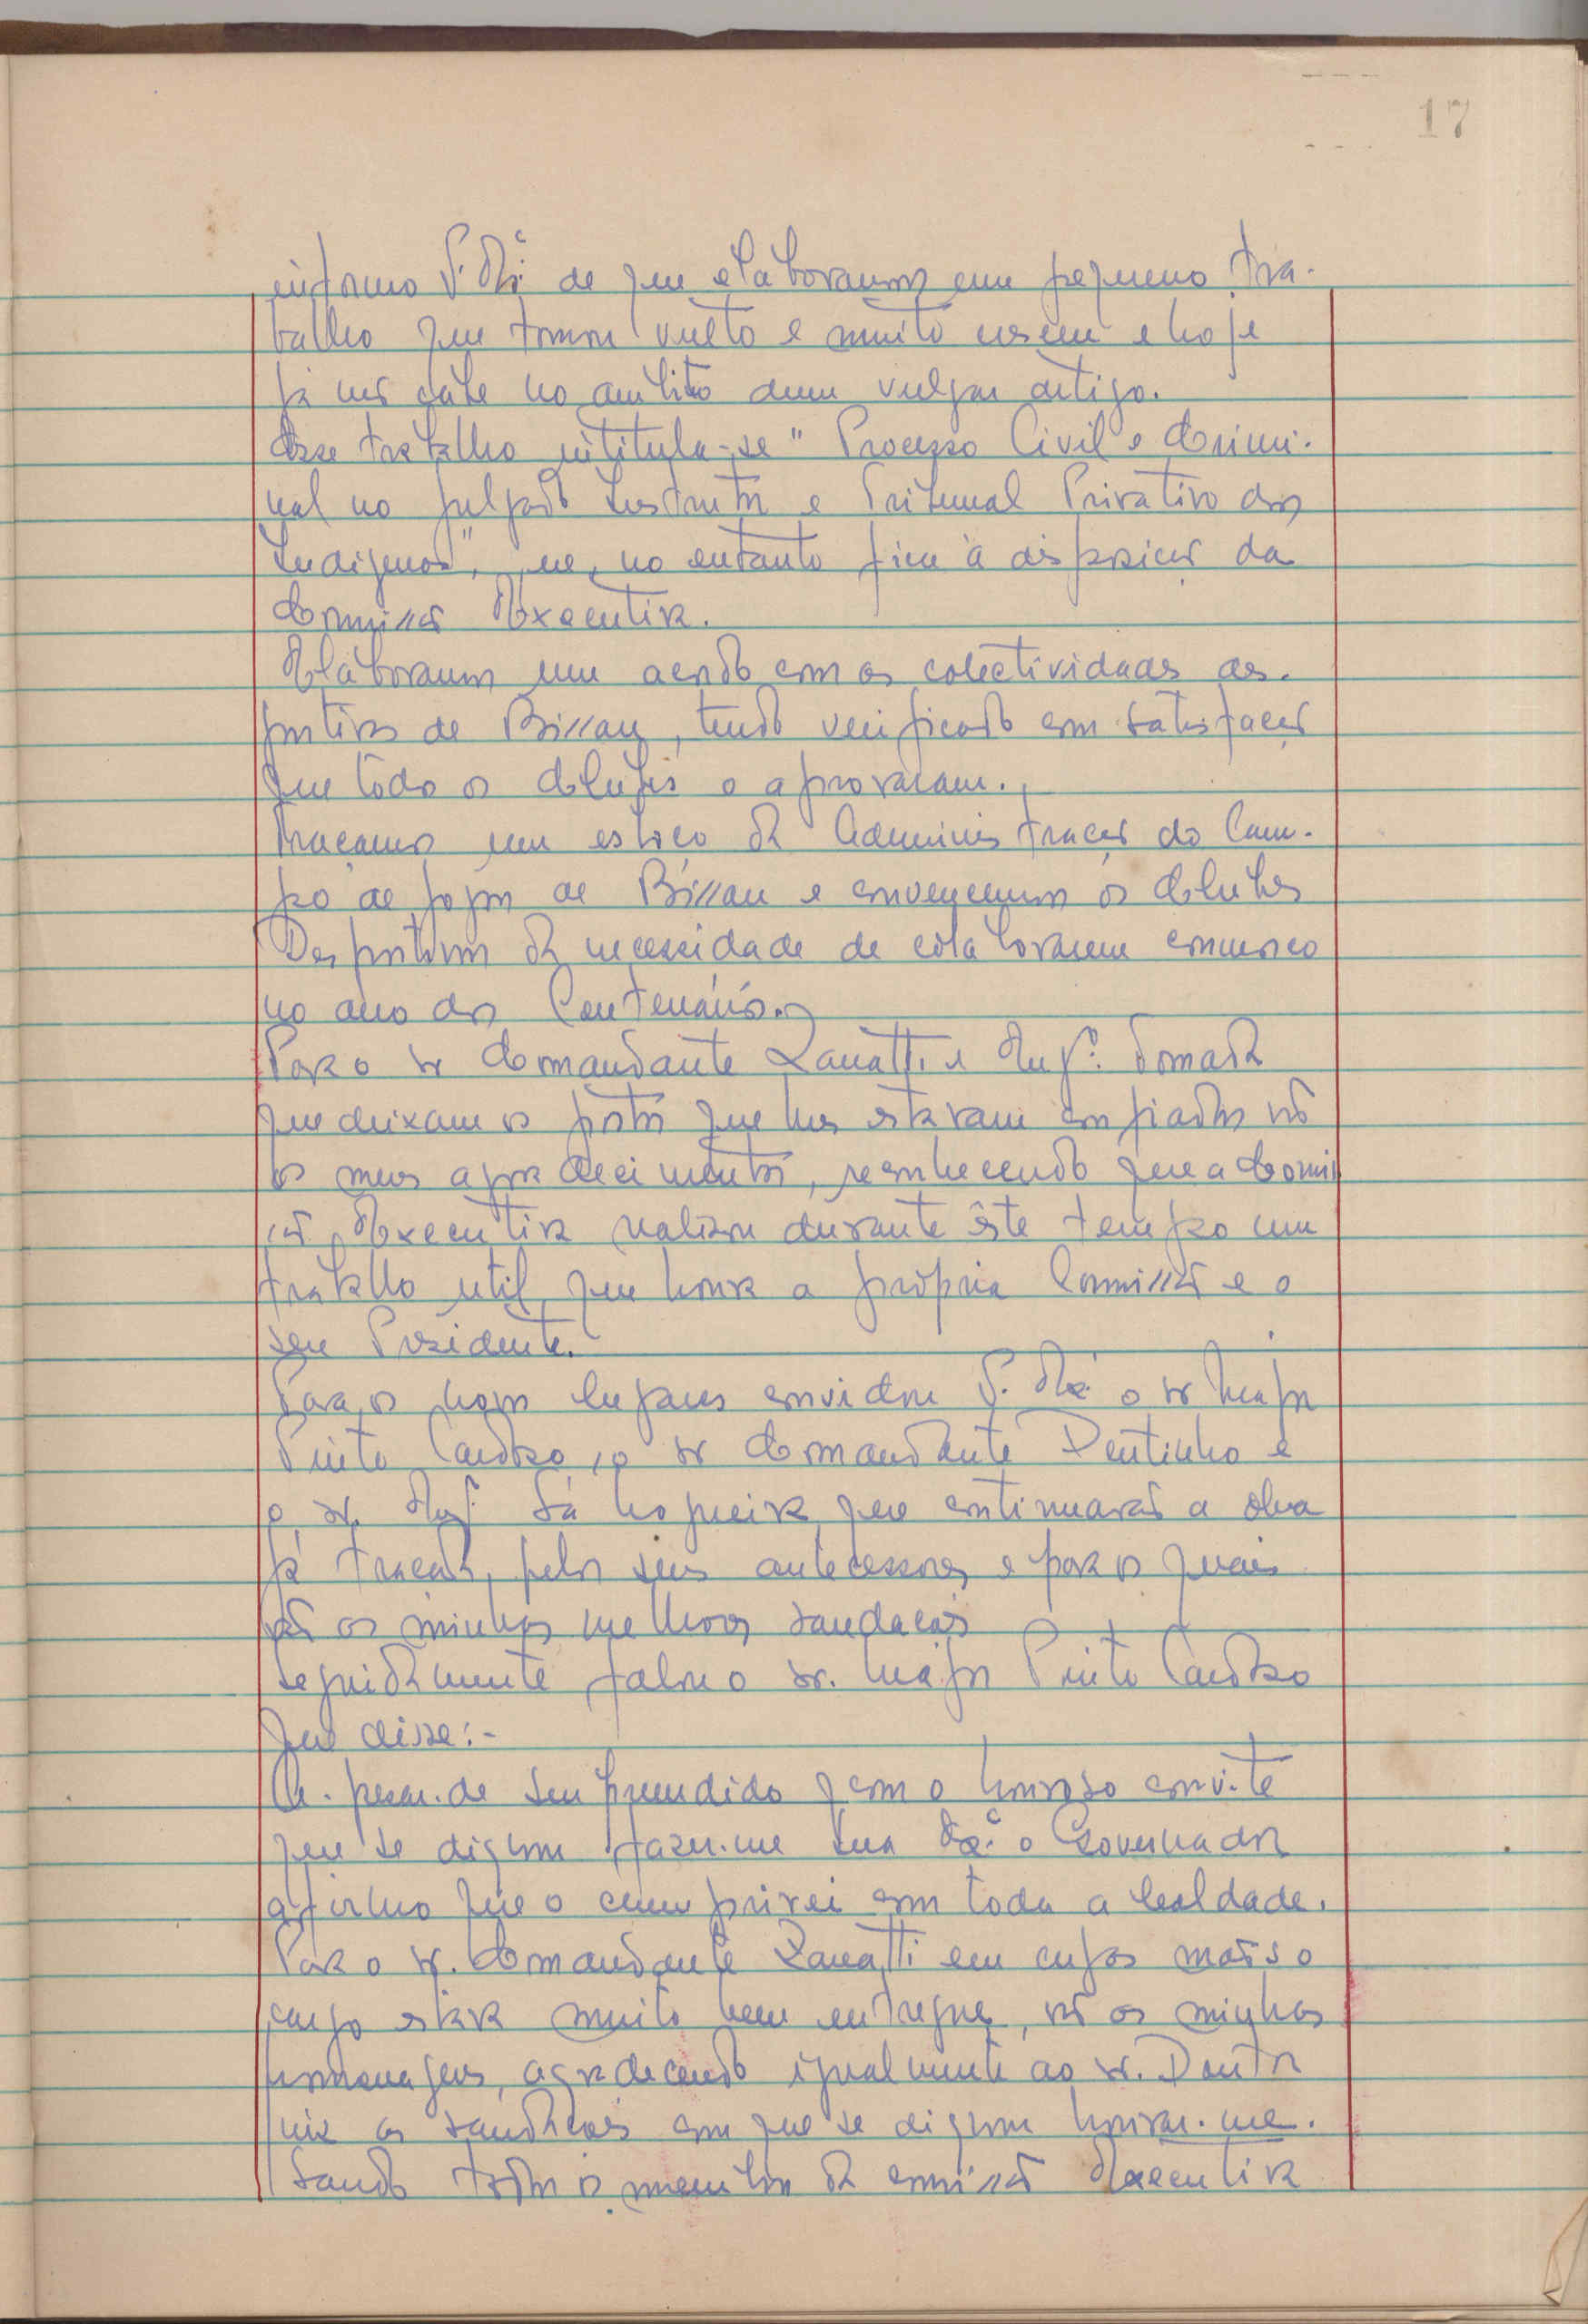 17
informo S. Ex.ª de que elaboramos um pequeno tra-
balho que tomou vulto e muito cresceu e hoje
já não cabe no âmbito dum vulgar artigo.
Esse trabalho intitula-se "Processo Civil e Crimi-
nal no Julgado Instrutor e Tribunal Privativo dos
Indígenas", que, no entanto fica à disposição da
Comissão Executiva.
Elaboramos um acordo com as colectividades des-
portivas de Bissau, tendo verificado com satisfação
que todos os Clubes o aprovaram.
Traçamos um esboço da Administração do Cam-
po de jogos de Bissau e convencemos os Clubes
Desportivos da necessidade de colaborarem connosco
no ano dos Centenários.
Para o sr Comandante Zanatti e Eng.º Tomaz
que deixam os postos que lhes estavam confiados vão
os meus agradecimentos, reconhecendo que a Comis
são Executiva realizou durante êste tempo um
trabalho util, que honra a própria Comissão e o
seu Presidente.
Para os novos lugares convidou S. Ex.ª o sr Major
Pinto Cardoso, o sr Comandante Dentinho e
o sr. Eng.º Sá Nogueira que continuarão a obra
já traçada, pelos seus antecessores e para os quais
vão as minhas melhores saudações
Seguidamente falou o sr. Major Pinto Cardoso
que disse:-
A-pesar-de surpreendido com o honroso convite
que se dignou fazer-me Sua Ex.ª o Governador
afirmo que o cumprirei com toda a lealdade.
Para o sr. Comandante Zanatti em cujas mãos o
cargo estava muito bem entregue, vão as minhas
homenagens, agradecendo igualmente ao sr. Doutor
as saudações com que se dignou honrar-me.
Saudo todos os membros da comissão Executiva